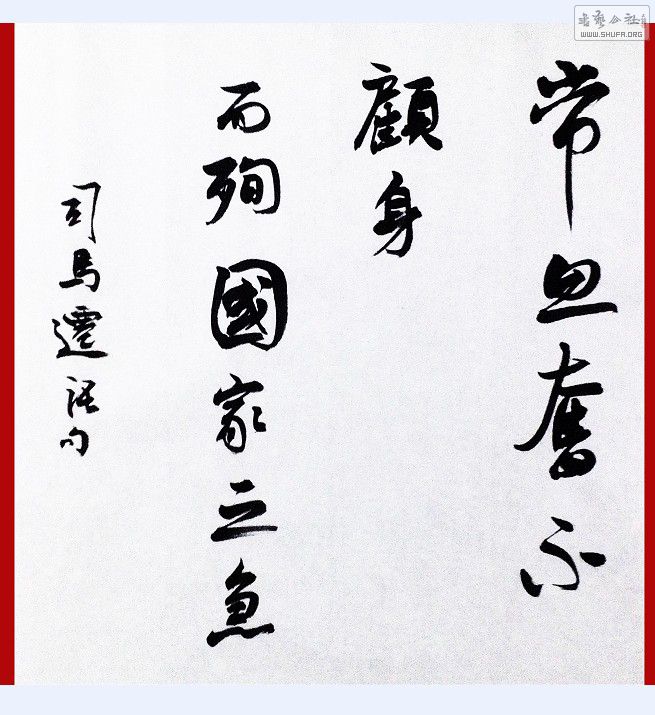 常思奮不
顧身
而殉國家之急
司馬遷語句
書藝公社
WWW.SHUFA.ORG